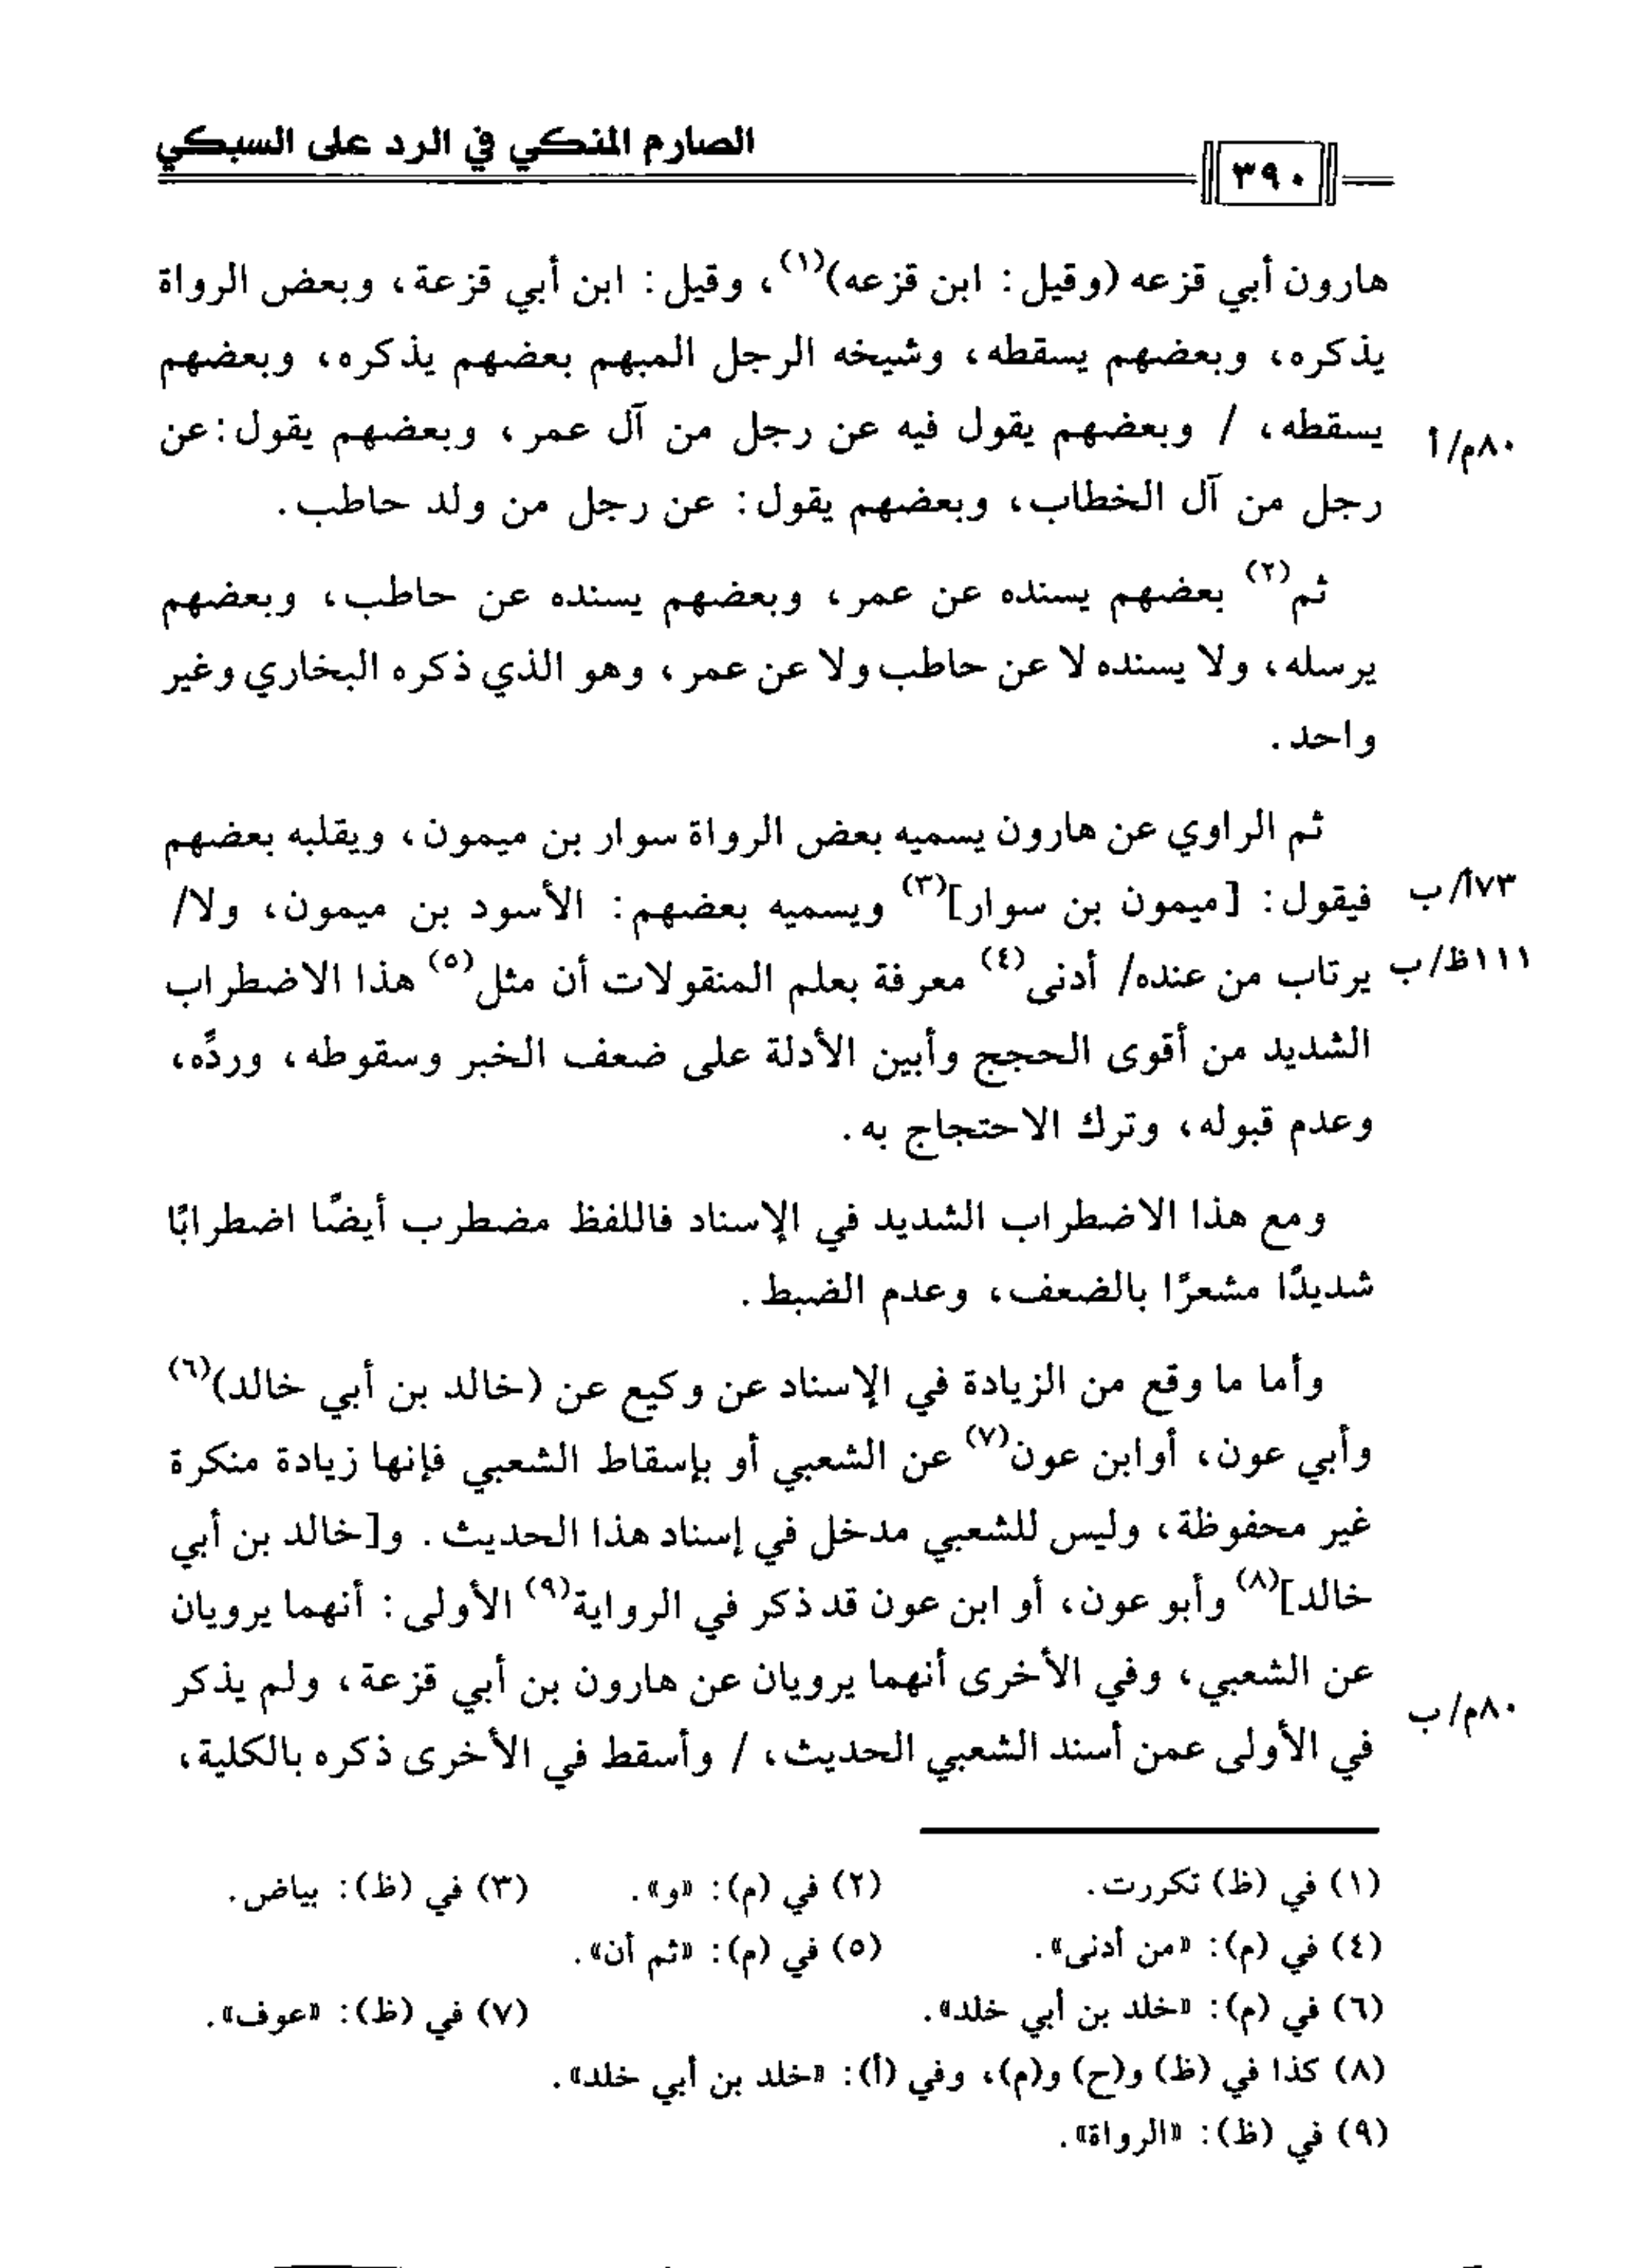 الصارم المنكي في الرد على السبكي
٣٩٠
هارون أبي قزعه (وقيل: ابن قزعه)(١)، وقيل: ابن أبي قزعة، وبعض الرواة
يذكره، وبعضهم يسقطه، وشيخه الرجل المبهم بعضهم يذكره، وبعضهم
يسقطه، / وبعضهم يقول فيه عن رجل من آل عمر، وبعضهم يقول: عن
٨٠م/أ
رجل من آل الخطاب، وبعضهم يقول: عن رجل من ولد حاطب.
ثم(٢) بعضهم يسنده عن عمر، وبعضهم يسنده عن حاطب، وبعضهم
يرسله، ولا يسنده لا عن حاطب ولا عن عمر، وهو الذي ذكره البخاري وغير
واحد.
ثم الراوي عن هارون يسميه بعض الرواة سوار بن ميمون، ويقلبه بعضهم
فيقول: [ميمون بن سوار](٣) ويسميه بعضهم: الأسود بن ميمون، ولا/
٧٣أ/ب
يرتاب من عنده/ أدنى(٤) معرفة بعلم المنقولات أن مثل(٥) هذا الاضطراب
١١١ظ/ب
الشديد من أقوى الحجج وأبين الأدلة على ضعف الخبر وسقوطه، وردًه،
وعدم قبوله، وترك الاحتجاج به.
ومع هذا الاضطراب الشديد في الإسناد فاللفظ مضطرب أيضًا اضطرابًا
شديدًا مشعرًا بالضعف، وعدم الضبط.
وأما ما وقع من الزيادة في الإسناد عن وكيع عن (خالد بن أبي خالد)(٦)
وأبي عون، أوابن عون(٧) عن الشعبي أو بإسقاط الشعبي فإنها زيادة منكرة
غير محفوظة، وليس للشعبي مدخل في إسناد هذا الحديث. و[خالد بن أبي
خالد](٨) وأبو عون، أو ابن عون قد ذكر في الرواية(٩) الأولى: أنهما يرويان
عن الشعبي، وفي الأخرى أنهما يرويان عن هارون بن أبي قزعة، ولم يذكر
في الأولى عمن أسند الشعبي الحديث، / وأسقط في الأخرى ذكره بالكلية،
٨٠م/ب
(١) في (ظ) تكررت. (٢) في (م): «و». (٣) في (ظ): بياض.
(٤) في (م): «من أدنى». (٥) في (م): «ثم أن».
(٦) في (م): «خلد بن أبي خلد». (٧) في (ظ): «عوف».
(٨) كذا في (ظ) و(ح) و(م)، وفي (أ): «خلد بن أبي خلد».
(٩) في (ظ): «الرواة».